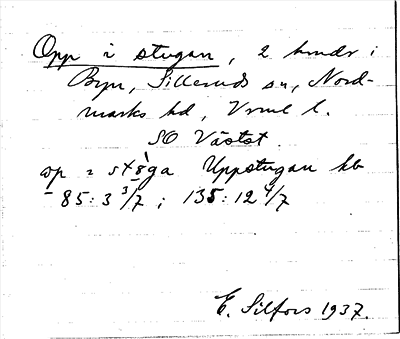 Opp i stugan, 2 hmdr i
Byn, Silleruds sn, Nord-
marks hd, Vrml l.
SO Västot.
Uppstugan kb
85:3 3/7; 135:12 4/7
E. Silfors 1937.